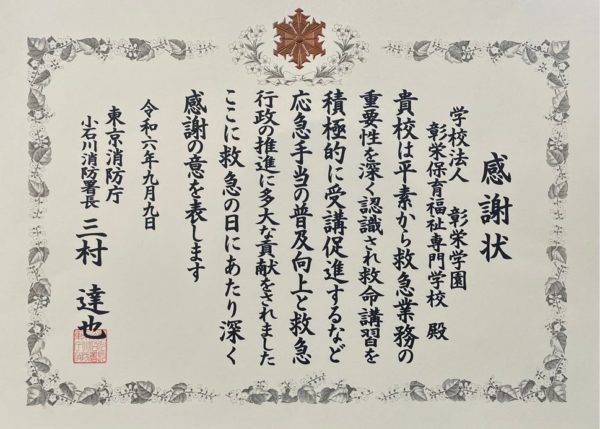 感謝状
学校法人 彰栄学園
彰栄保育福祉専門学校 殿
貴校は平素から救急業務の
重要性を深く認識され救命講習を
積極的に受講促進するなど
応急手当の普及向上と救急
行政の推進に多大な貢献をされました
ここに救急の日にあたり深く
感謝の意を表します
令和六年九月九日
東京消防庁
小石川消防署長 三村 達也